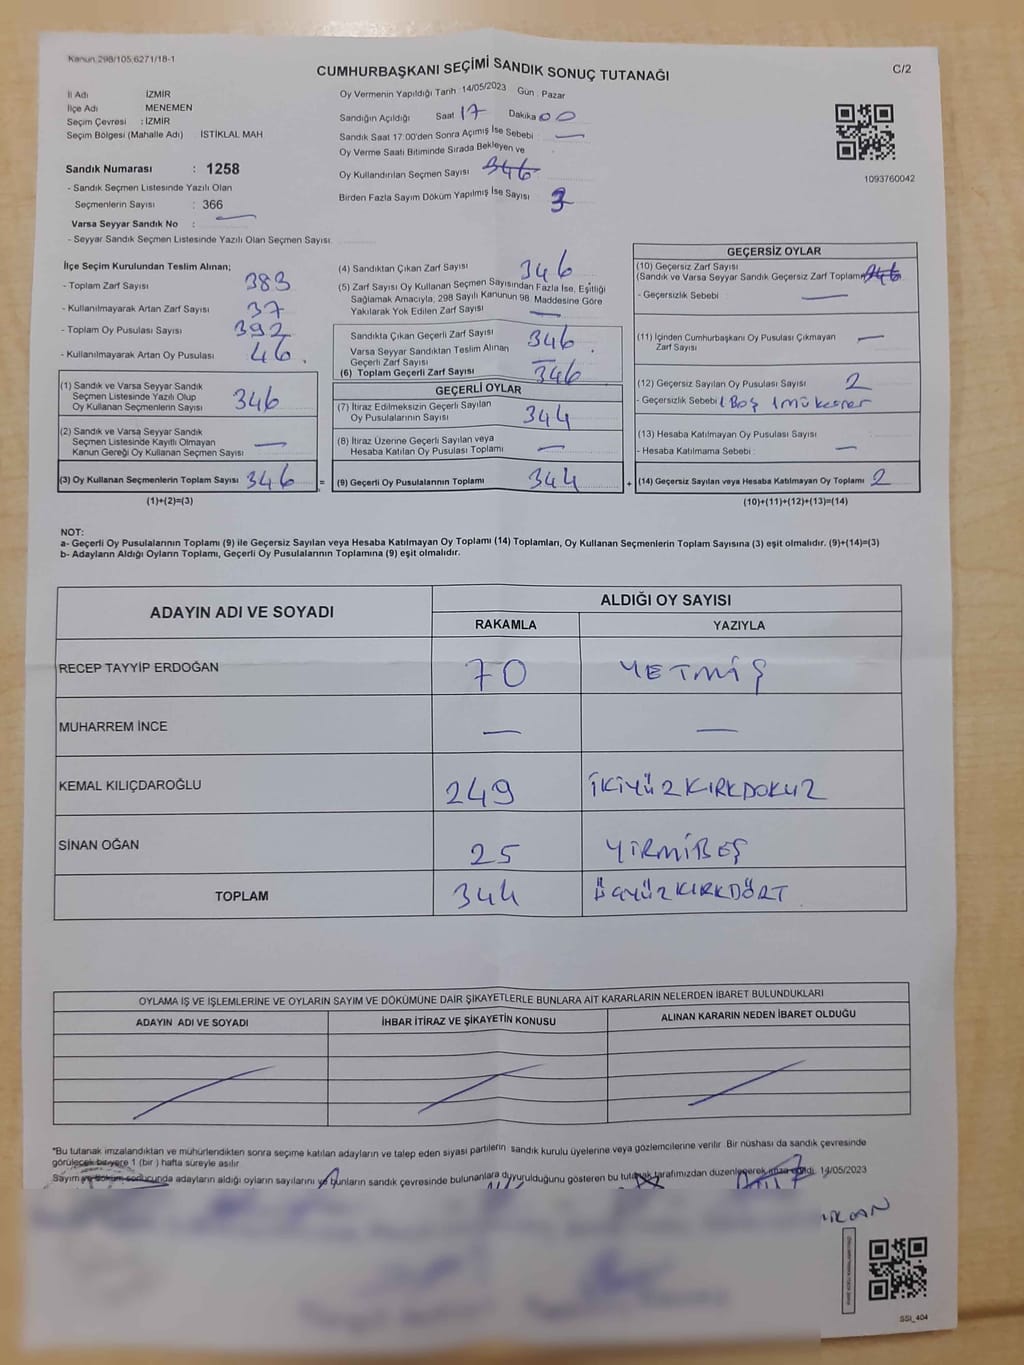 Kanun:298/105;6271/18-1
CUMHURBAŞKANI SEÇİMİ SANDIK SONUÇ TUTANAĞI
C/2
İl Adı İZMİR
İlçe Adı MENEMEN
Seçim Çevresi : İZMİR
Seçim Bölgesi (Mahalle Adı) İSTİKLAL MAH
Sandık Numarası : 1258
- Sandık Seçmen Listesinde Yazılı Olan
Seçmenlerin Sayısı : 366
Varsa Seyyar Sandık No :
- Seyyar Sandık Seçmen Listesinde Yazılı Olan Seçmen Sayısı:
Oy Vermenin Yapıldığı Tarih : 14/05/2023 Gün : Pazar
Sandığın Açıldığı Saat 17 Dakika 00
Sandık Saat 17:00'den Sonra Açımış İse Sebebi : —
Oy Verme Saati Bitiminde Sırada Bekleyen ve
Oy Kullandırılan Seçmen Sayısı 346
Birden Fazla Sayım Döküm Yapılmış İse Sayısı 3
1093760042
İlçe Seçim Kurulundan Teslim Alınan;
- Toplam Zarf Sayısı 383
- Kullanılmayarak Artan Zarf Sayısı 37
- Toplam Oy Pusulası Sayısı 392
- Kullanılmayarak Artan Oy Pusulası 46
(1) Sandık ve Varsa Seyyar Sandık
Seçmen Listesinde Yazılı Olup
Oy Kullanan Seçmenlerin Sayısı 346
(2) Sandık ve Varsa Seyyar Sandık
Seçmen Listesinde Kayıtlı Olmayan
Kanun Gereği Oy Kullanan Seçmen Sayısı —
(3) Oy Kullanan Seçmenlerin Toplam Sayısı 346 =
(1)+(2)=(3)
(4) Sandıktan Çıkan Zarf Sayısı 346
(5) Zarf Sayısı Oy Kullanan Seçmen Sayısından Fazla İse, Eşitliği
Sağlamak Amacıyla, 298 Sayılı Kanunun 98. Maddesine Göre
Yakılarak Yok Edilen Zarf Sayısı —
Sandıkta Çıkan Geçerli Zarf Sayısı 346
Varsa Seyyar Sandıktan Teslim Alınan
Geçerli Zarf Sayısı —
(6) Toplam Geçerli Zarf Sayısı 346
GEÇERLİ OYLAR
(7) İtiraz Edilmeksizin Geçerli Sayılan
Oy Pusulalarının Sayısı 344
(8) İtiraz Üzerine Geçerli Sayılan veya
Hesaba Katılan Oy Pusulası Toplamı —
(9) Geçerli Oy Pusulalarının Toplamı 344 +
GEÇERSİZ OYLAR
(10) Geçersiz Zarf Sayısı
(Sandık ve Varsa Seyyar Sandık Geçersiz Zarf Toplamı) 346
- Geçersizlik Sebebi —
(11) İçinden Cumhurbaşkanı Oy Pusulası Çıkmayan
Zarf Sayısı —
(12) Geçersiz Sayılan Oy Pusulası Sayısı 2
- Geçersizlik Sebebi 1 Boş 1 mükerrer
(13) Hesaba Katılmayan Oy Pusulası Sayısı
- Hesaba Katılmama Sebebi : —
(14) Geçersiz Sayılan veya Hesaba Katılmayan Oy Toplamı 2
(10)+(11)+(12)+(13)=(14)
NOT:
a- Geçerli Oy Pusulalarının Toplamı (9) ile Geçersiz Sayılan veya Hesaba Katılmayan Oy Toplamı (14) Toplamları, Oy Kullanan Seçmenlerin Toplam Sayısına (3) eşit olmalıdır. (9)+(14)=(3)
b- Adayların Aldığı Oyların Toplamı, Geçerli Oy Pusulalarının Toplamına (9) eşit olmalıdır.
ADAYIN ADI VE SOYADI
ALDIĞI OY SAYISI
RAKAMLA YAZIYLA
RECEP TAYYİP ERDOĞAN 70 YETMİŞ
MUHARREM İNCE — —
KEMAL KILIÇDAROĞLU 249 İKİYÜZKIRKDOKUZ
SİNAN OĞAN 25 YİRMİBEŞ
TOPLAM 344 ÜÇYÜZKIRKDÖRT
OYLAMA İŞ VE İŞLEMLERİNE VE OYLARIN SAYIM VE DÖKÜMÜNE DAİR ŞİKAYETLERLE BUNLARA AİT KARARLARIN NELERDEN İBARET BULUNDUKLARI
ADAYIN ADI VE SOYADI İHBAR İTİRAZ VE ŞİKAYETİN KONUSU ALINAN KARARIN NEDEN İBARET OLDUĞU
*Bu tutanak imzalandıktan ve mühürlendikten sonra seçime katılan adayların ve talep eden siyasi partilerin sandık kurulu üyelerine veya gözlemcilerine verilir. Bir nüshası da sandık çevresinde
görülecek bir yere 1 (bir ) hafta süreyle asılır
Sayım ve döküm sonucunda adayların aldığı oyların sayılarını ve bunların sandık çevresinde bulunanlara duyurulduğunu gösteren bu tutanak tarafımızdan düzenlenerek imza edildi. 14/05/2023
SSİ_404